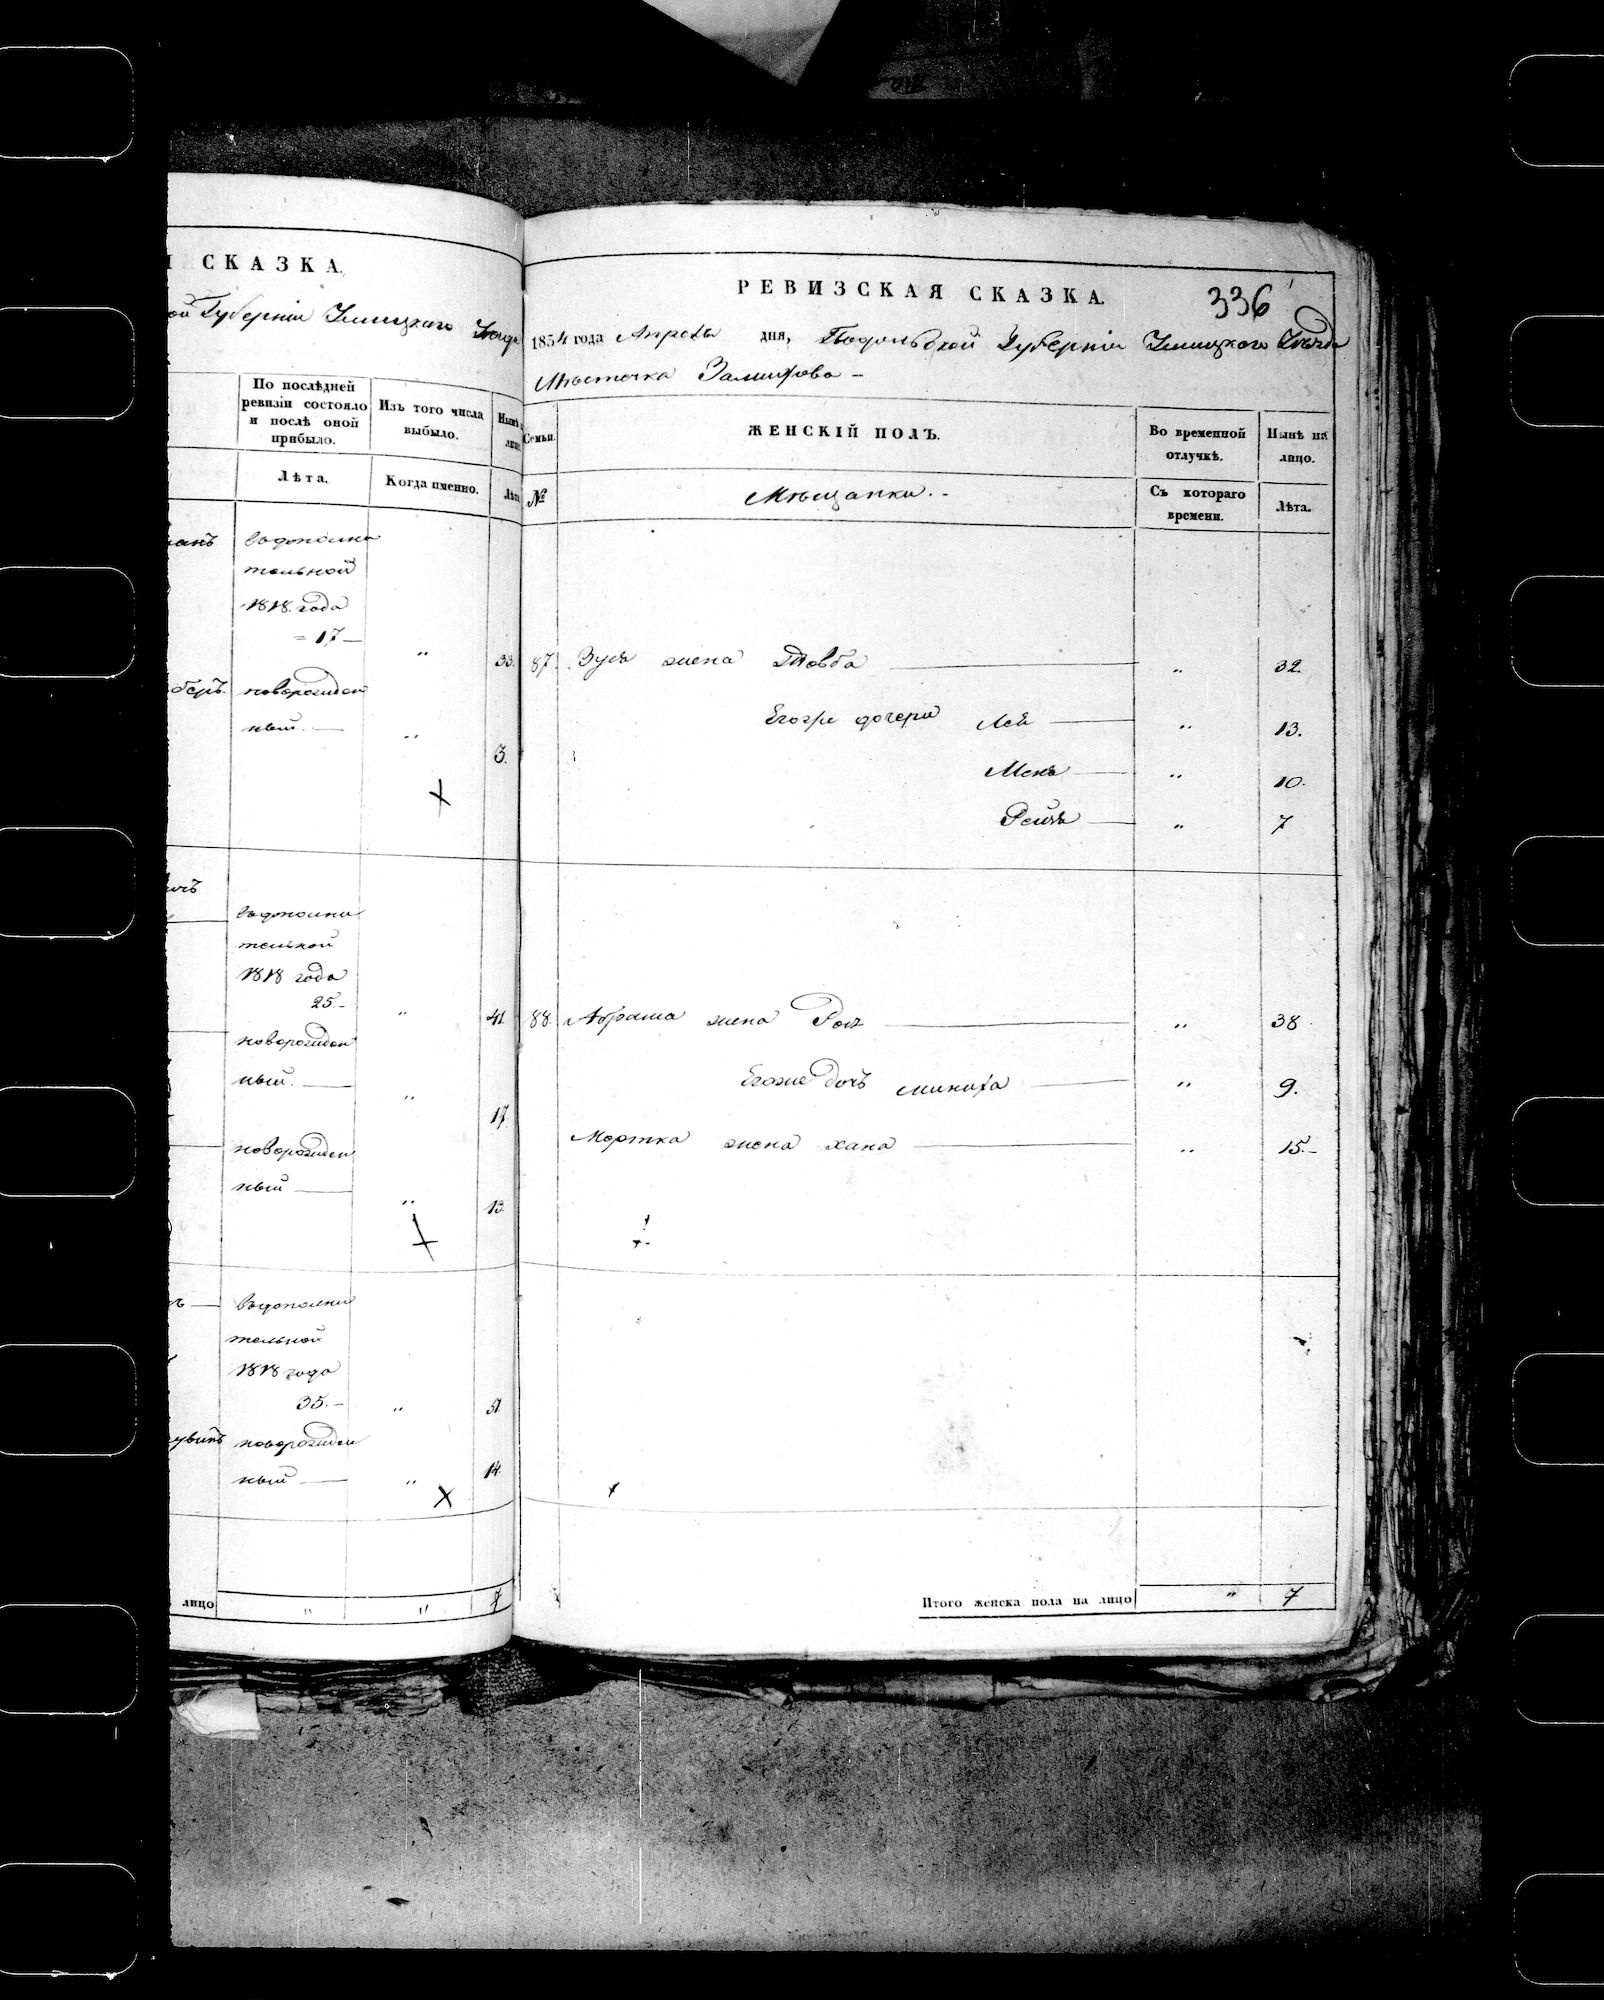 СКАЗКА.
ой Губернiи Ушицкаго Уѣзда
По послѣдней
ревизiи состояло
и послѣ оной
прибыло.
Изъ того числа
выбыло.
Нынѣ
лицо
Лѣта.
Когда именно.
Лѣта
въ дополни
тельной
1818. года
= 17 —
„
33.
беръ.
новорожден
ный. —
„
3.
въ дополни
тельной
1818 года
25. –
„
41.
новорожден
ный. —
„
17.
новорожден
ный —
„
13.
въ дополни
тельной
1818 года
35. –
„
51.
новорожден
ный —
„
14.
лицо
„
„
7
РЕВИЗСКАЯ СКАЗКА.
336
1854 года Апрель дня, Подольской Губернiи Ушицкаго Уѣзда
Мѣстечка Замихова –
Семьи.
ЖЕНСКIЙ ПОЛЪ.
Во временной
отлучкѣ.
Нынѣ на
лицо.
№
Мѣщанки. -
Съ котораго
времени.
Лѣта.
87. Зуся жена Товба — „ 32.
Егоже дочери Лея — „ 13.
Меня — „ 10.
Рейзя — „ 7
88. Абрама жена — „ 38
Егоже дочь Миниха — „ 9.
Мортка жена хана — „ 15. –
Итого женска пола на лицо „ 7